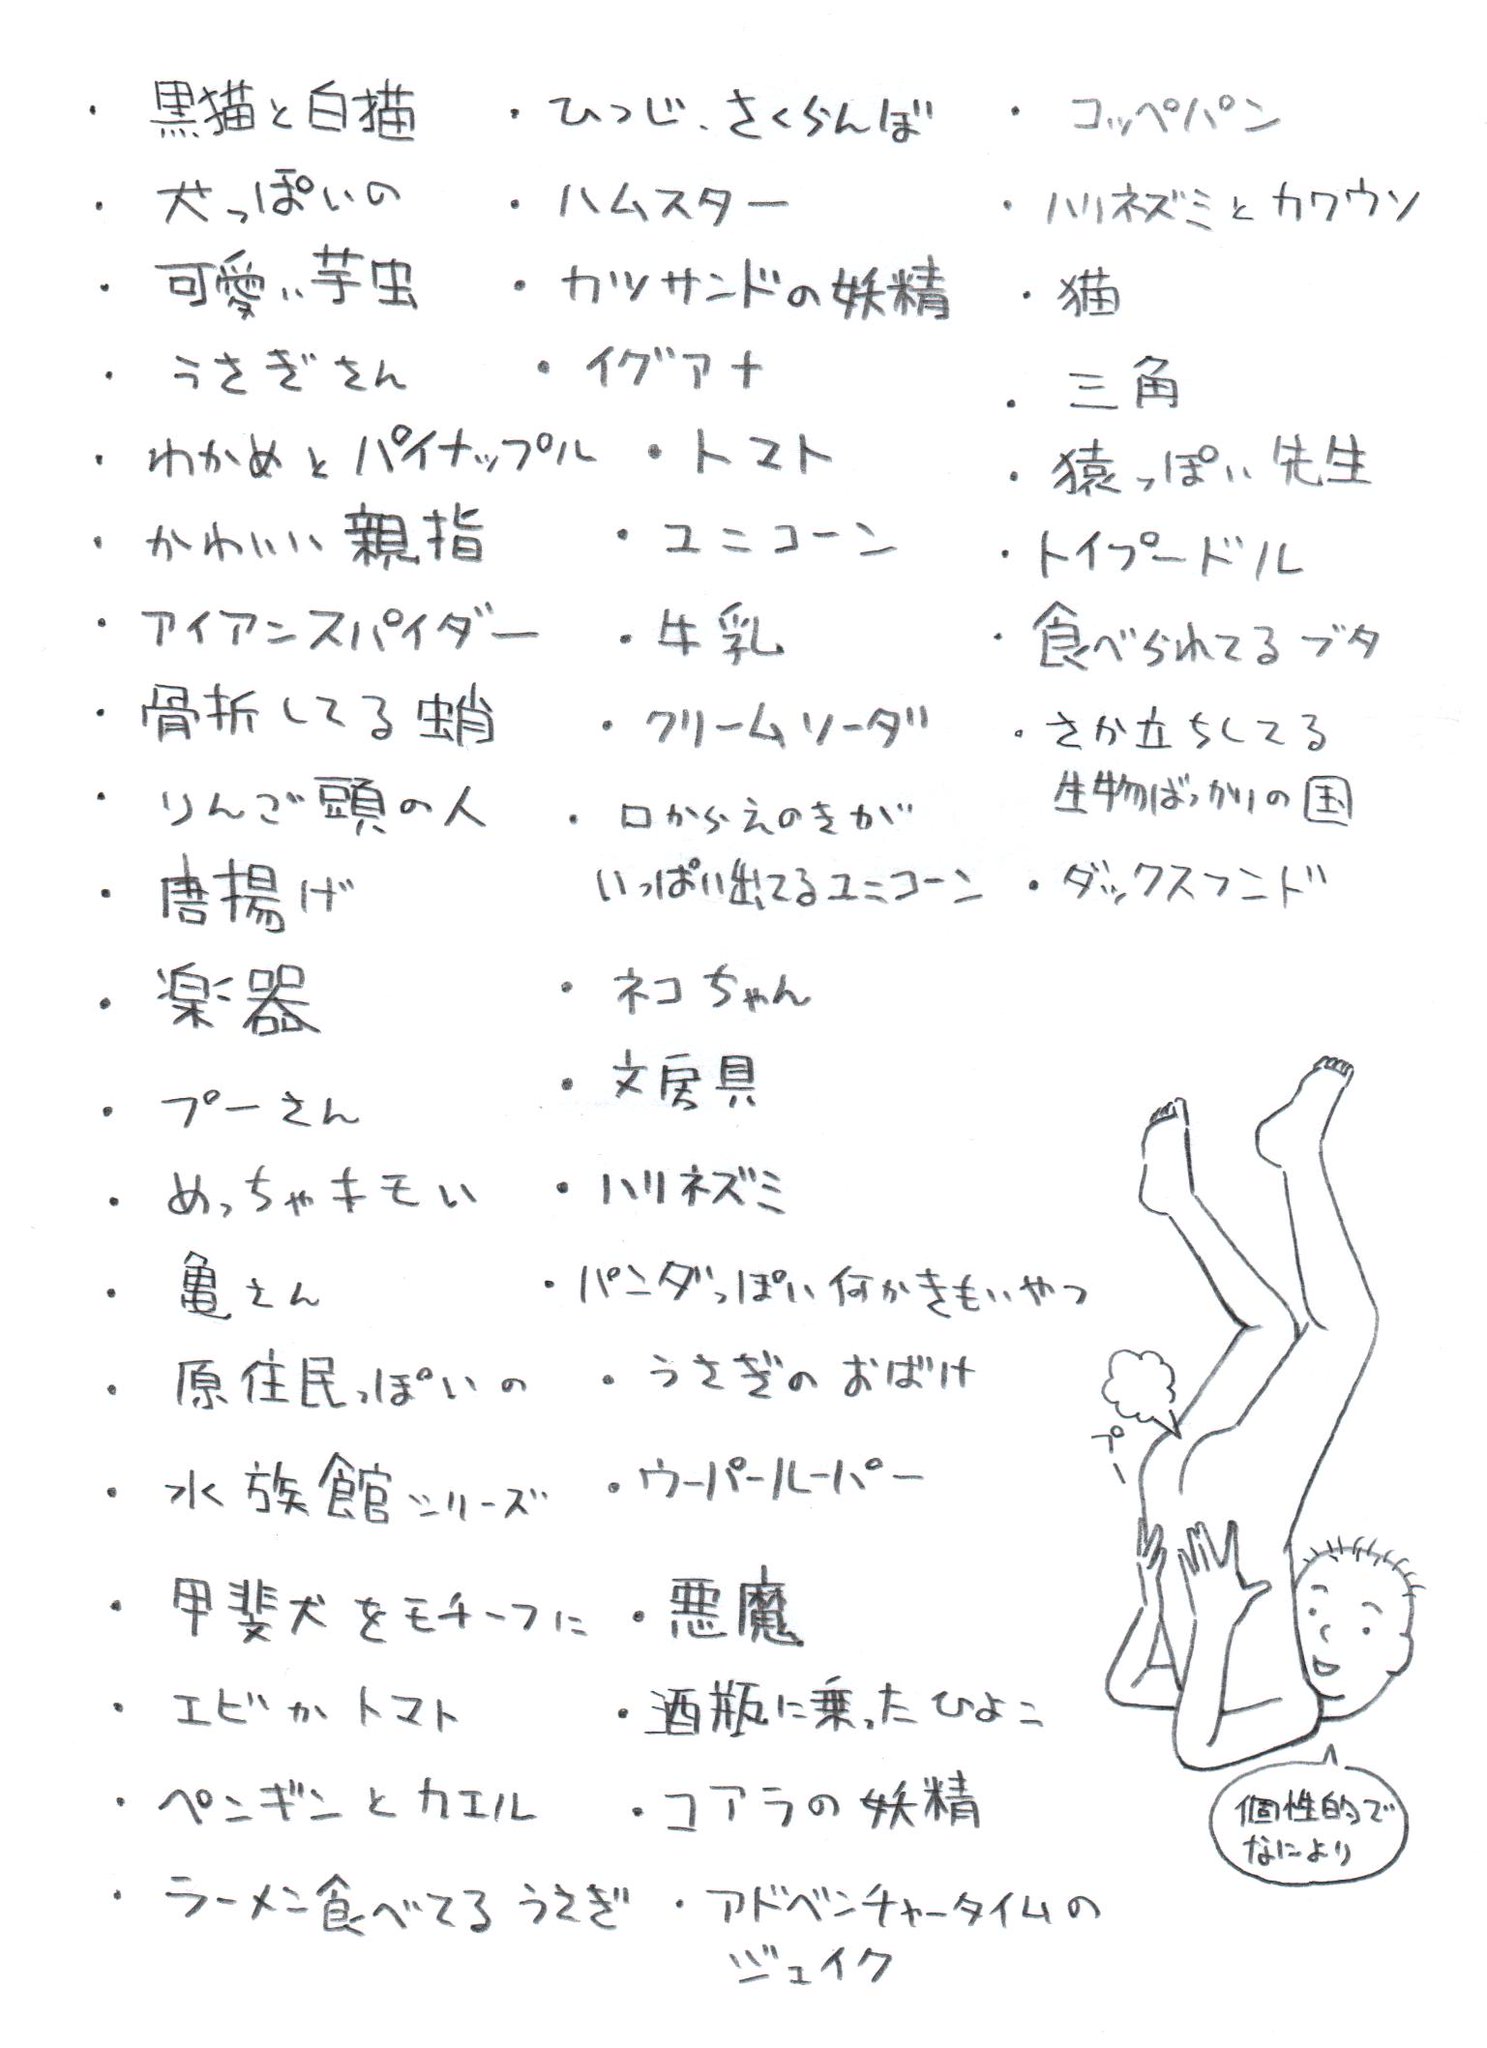 ・黒猫と白猫
・犬っぽいの
・可愛い芋虫
・うさぎさん
・わかめとパイナップル
・かわいい親指
・アイアンスパイダー
・骨折してる蛸
・りんご頭の人
・唐揚げ
・楽器
・プーさん
・めっちゃキモい
・亀さん
・原住民っぽいの
・水族館シリーズ
・甲斐犬をモチーフに
・エビかトマト
・ペンギンとカエル
・ラーメン食べてるうさぎ
・ひつじ、さくらんぼ
・ハムスター
・カツサンドの妖精
・イグアナ
・トマト
・ユニコーン
・牛乳
・クリームソーダ
・口からえのきが
いっぱい出てるユニコーン
・ネコちゃん
・文房具
・ハリネズミ
・パンダっぽい何かきもいやつ
・うさぎのおばけ
・ウーパールーパー
・悪魔
・酒瓶に乗ったひよこ
・コアラの妖精
・アドベンチャータイムの
ジェイク
・コッペパン
・ハリネズミとカワウソ
・猫
・三角
・猿っぽい先生
・トイプードル
・食べられてるブタ
・さか立ちしてる
生物ばっかりの国
・ダックスフンド
プー
個性的で
なにより